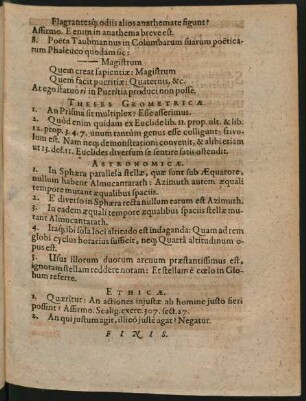 Flagrantesq́; odiis alios anathemate figunt?
Affirmo. E enim in anathema breve est.
8. Poëta Taubmannus in Columbarum suarum poëtica-
rum Phaleuco quodam sic:
—— Magistrum
Quem creat sapientiæ: Magistrum
Quem facit pueritiæ: Quaternis, &c.
At ego statuo ἐι in Pueritia produci non posse.
THESES GEOMETRICÆ
1. An Prisma sit multiplex? Esse asserimus.
2. Quod enim quidam ex Euclide lib. 11. prop. ult. & lib.
12. prop. 3. 4. 7. unum tantùm genus esse colligunt; frivo-
lum est. Nam neq; demonstrationi convenit, & alibi etiam
ut 13. def. 11. Euclides diversum se sentire satis ostendit.
ASTRONOMICÆ.
1. In Sphæra parallela stellæ, quæ sunt sub Æquatore,
nullum habent Almucantarath: Azimuth autem æquali
tempore mutant æqualibus spaciis.
2. E diverso in Sphæra recta nullum earum est Azimuth.
3. In eadem æquali tempore æqualibus spaciis stellæ mu-
tant Almucantarath.
4. Itaq; ibi sola loci altitudo est indaganda: Quam ad rem
globi cyclus horarius sufficit, neq; Quartâ altitudinum o-
pus est.
5. Usus illorum duorum arcuum præstantissimus est,
ignotam stellam reddere notam: Et stellam è cœlo in Glo-
bum referre.
ETHICÆ.
1. Quæritur: An actiones injustæ ab homine justo fieri
possint? Affirmo. Scalig. exerc. 307. sect. 27.
2. An qui justum agit, illicò justè agat? Negatur.
FINIS.